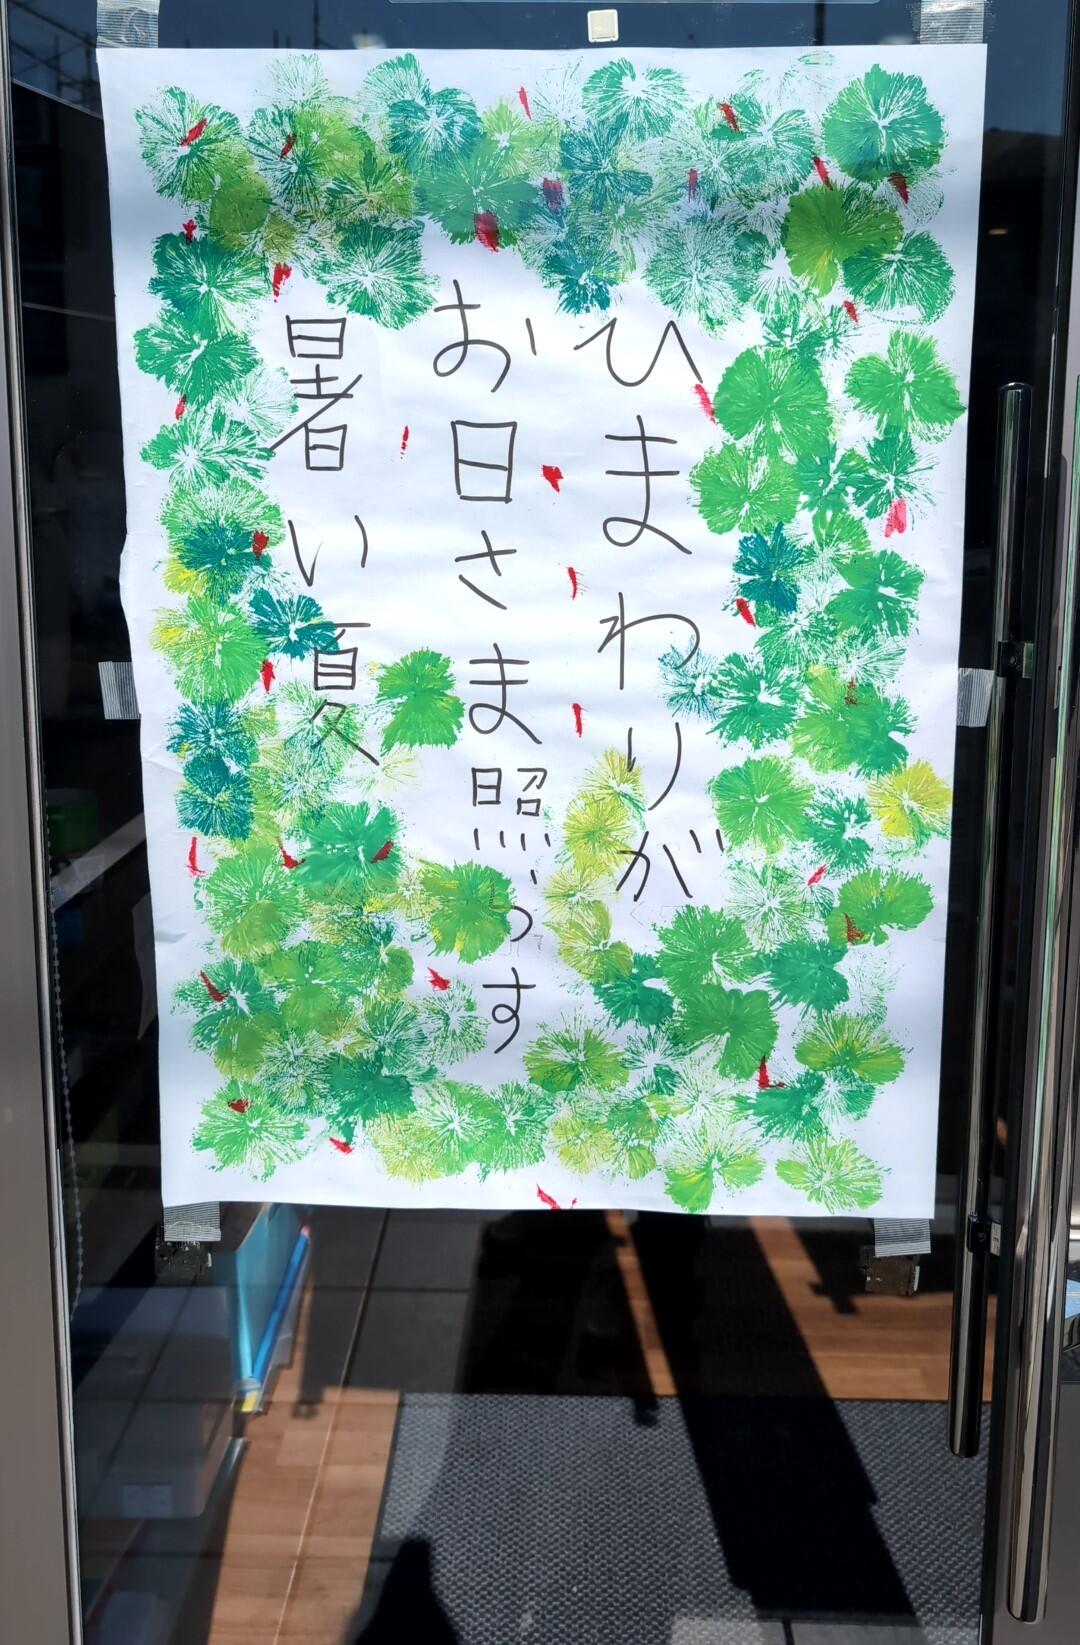 ひまわりが
お日さま照らす
暑い夏